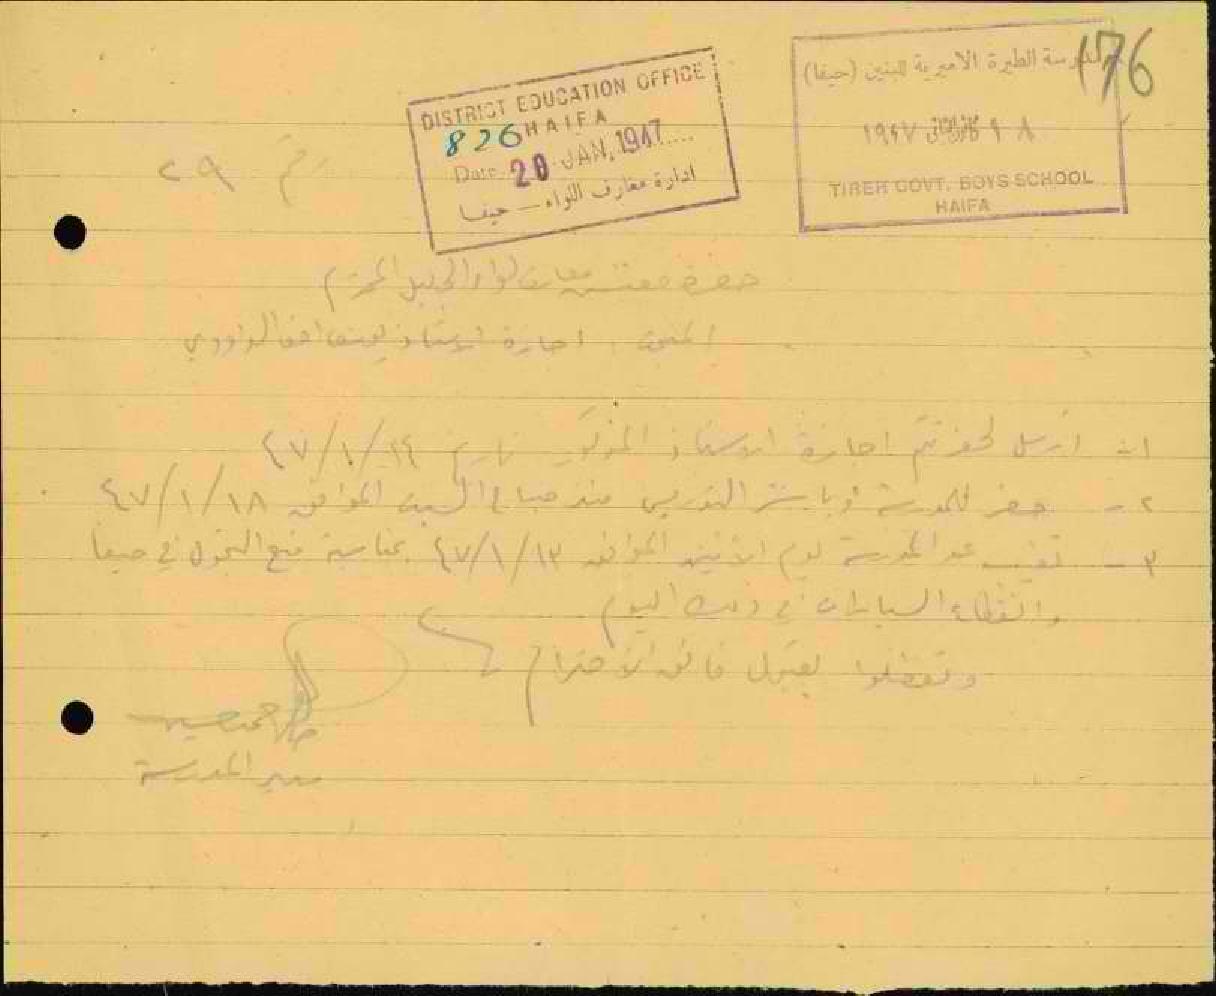 176
مدرسة الطيرة الاميرية للبنين (حيفا)
١٨ كانون الثاني ١٩٤٧
TIREH GOVT. BOYS SCHOOL
HAIFA
DISTRICT EDUCATION OFFICE
HAIFA
826
Date 20 JAN, 1947
ادارة معارف اللواء — حيفا
رقم ٢٩
حضرة مفتش معارف لواء الجليل المحترم
اجازة الاستاذ يوسف افندي
١- ارسل لحضرتكم اجازة الاستاذ المذكور تاريخ ٤٧/١/١٤
٢- حضر للمدرسة وباشر التدريس منذ صباح السبت الموافق ٤٧/١/١٨
٣- تغيب عن المدرسة يوم الاثنين الموافق ٤٧/١/١٣ بمناسبة منع التجول في حيفا
وانقطاع السيارات في ذلك اليوم
وتفضلوا بقبول فائق الاحترام
مدير المدرسة